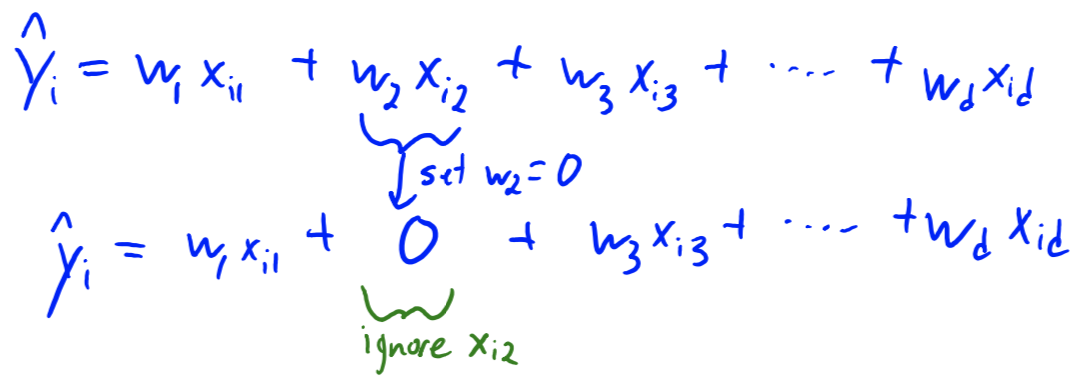 ŷᵢ = w₁xᵢ₁ + w₂xᵢ₂ + w₃xᵢ₃ + .... + w_d x_id
set w₂=0
ŷᵢ = w₁xᵢ₁ + 0 + w₃xᵢ₃ + .... + w_d x_id
ignore xᵢ₂